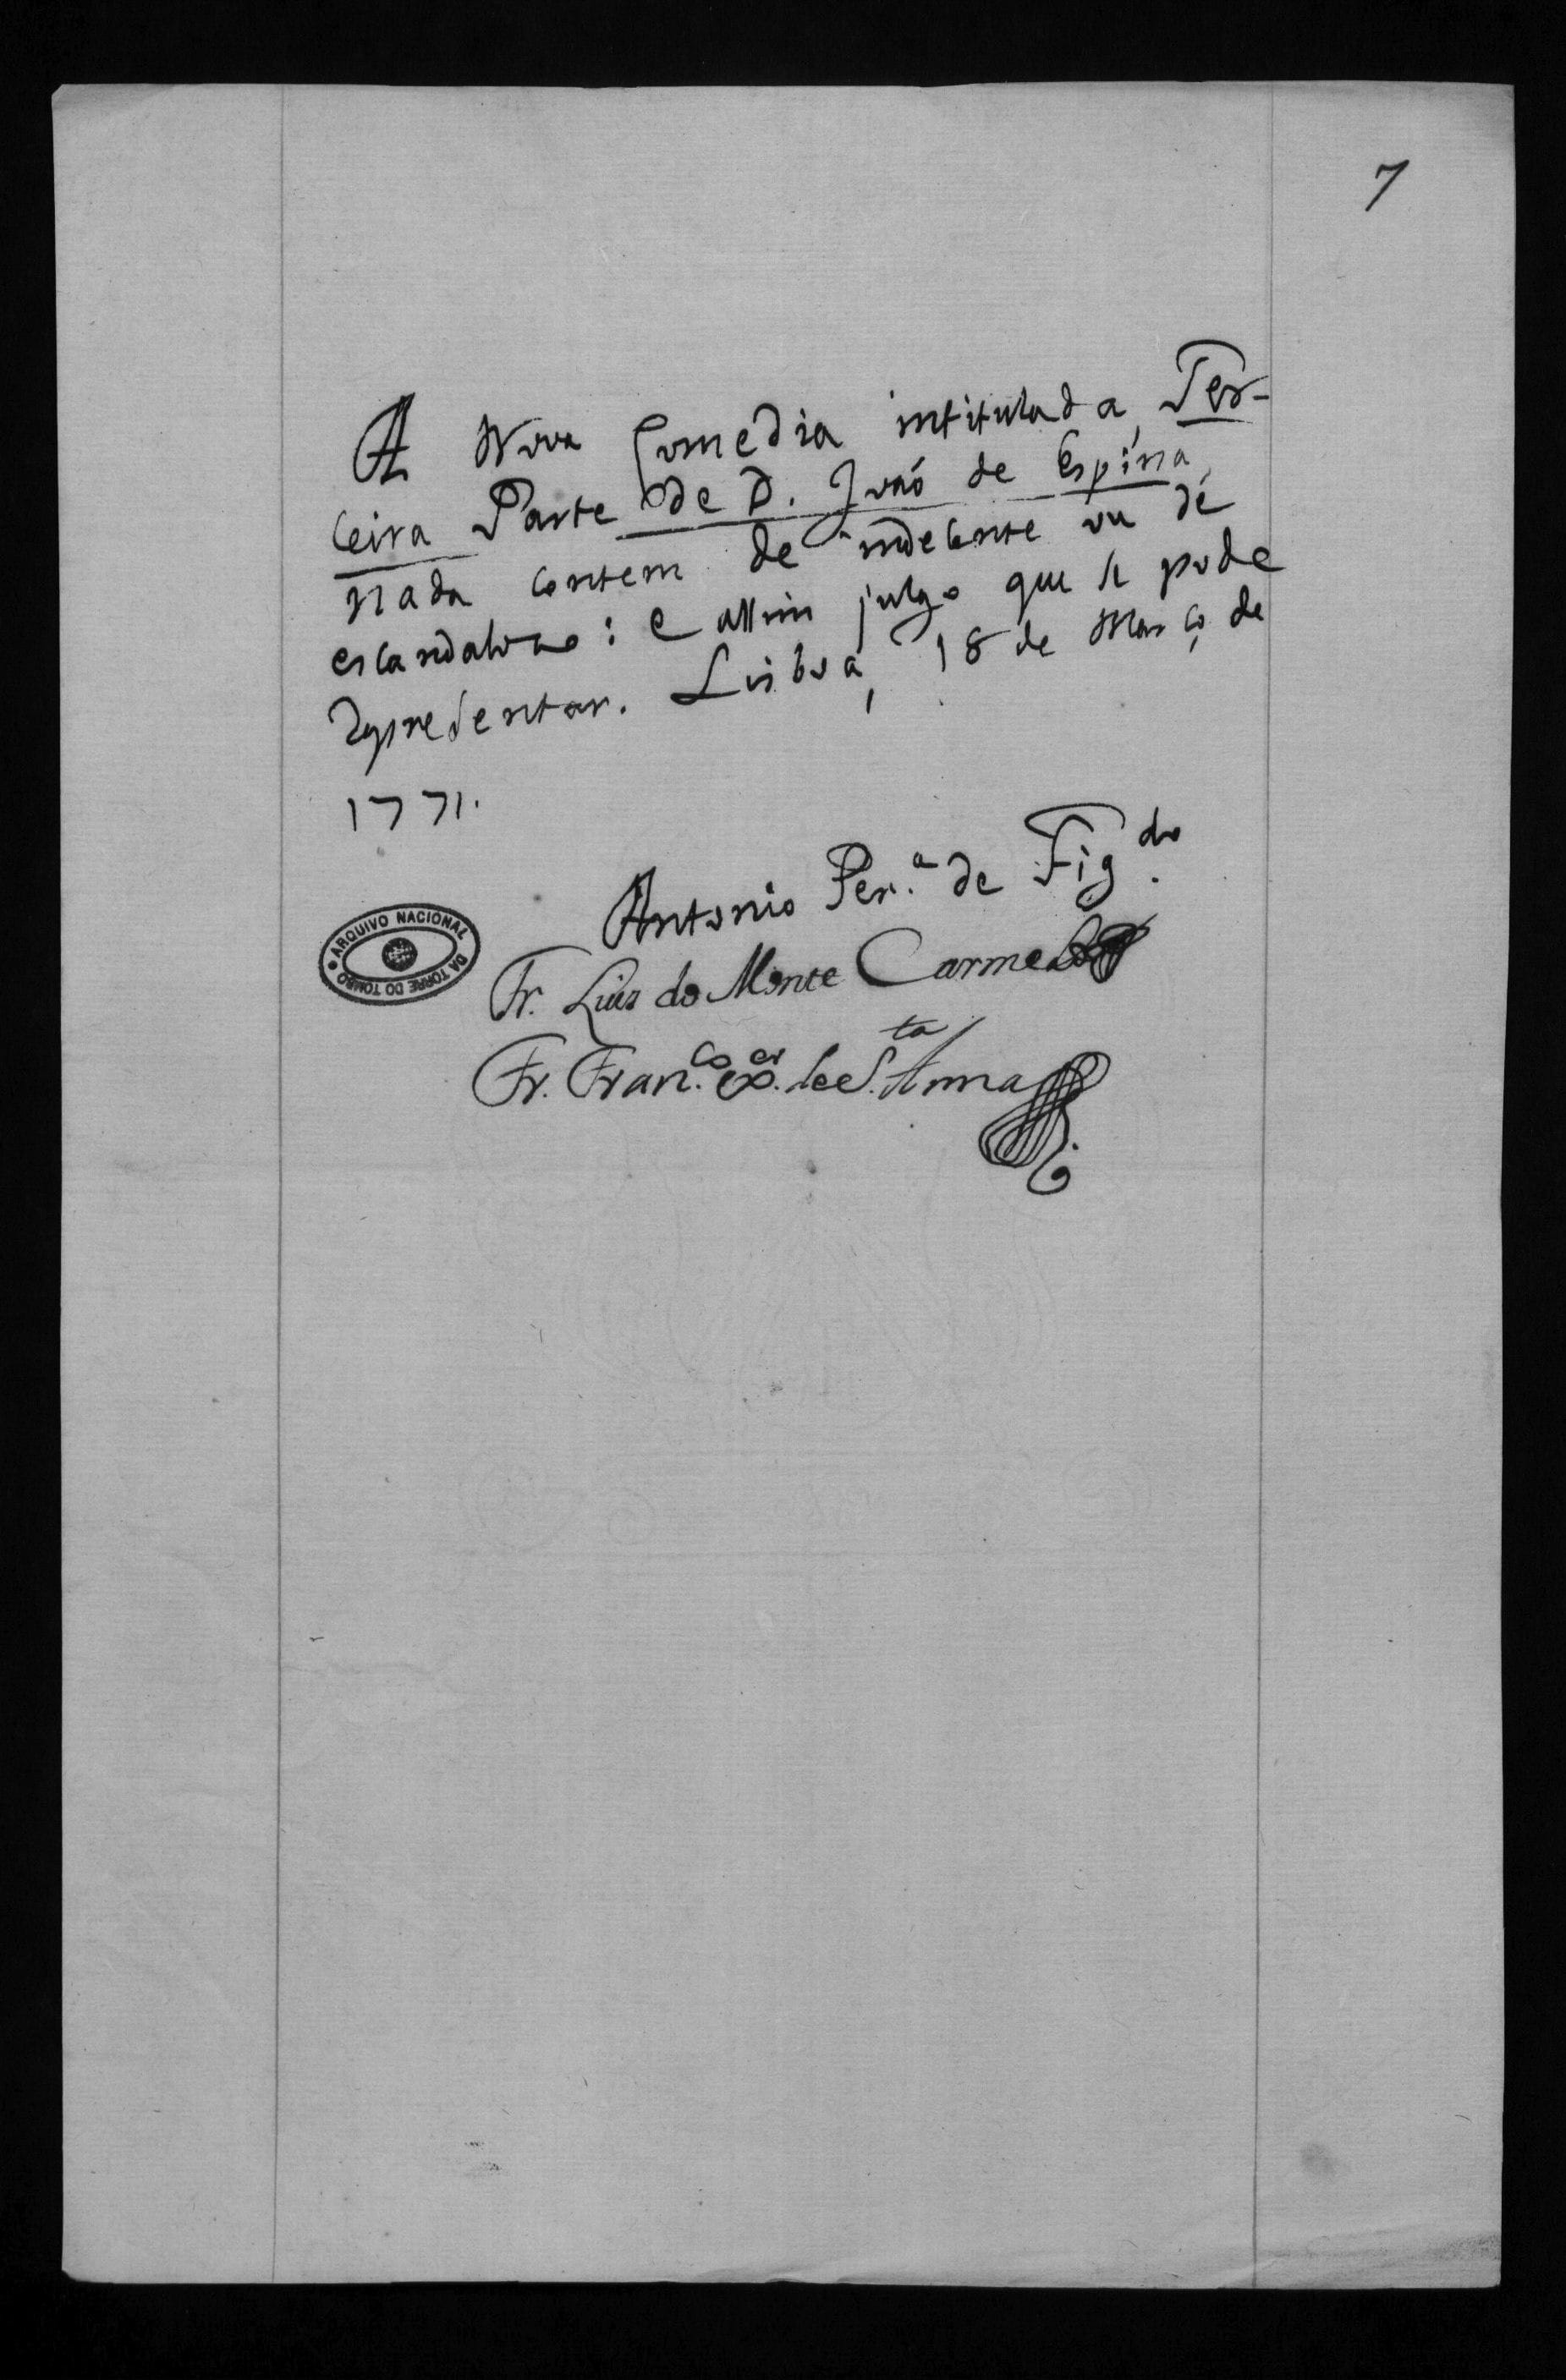 7
A Nova Comedia intitulada, Ter-
ceira Parte de D. Joaõ de Espina,
nada contem de indecente ou de
escandaloso: e assim julgo que se pode
representar. Lisboa, 18 de Março de
1771.
Antonio Per.ª de Fig.do
Fr. Luiz do Monte Carmelo
Fr. Fran.co X.er de S.ta Anna
ARQUIVO NACIONAL
DA TORRE DO TOMBO